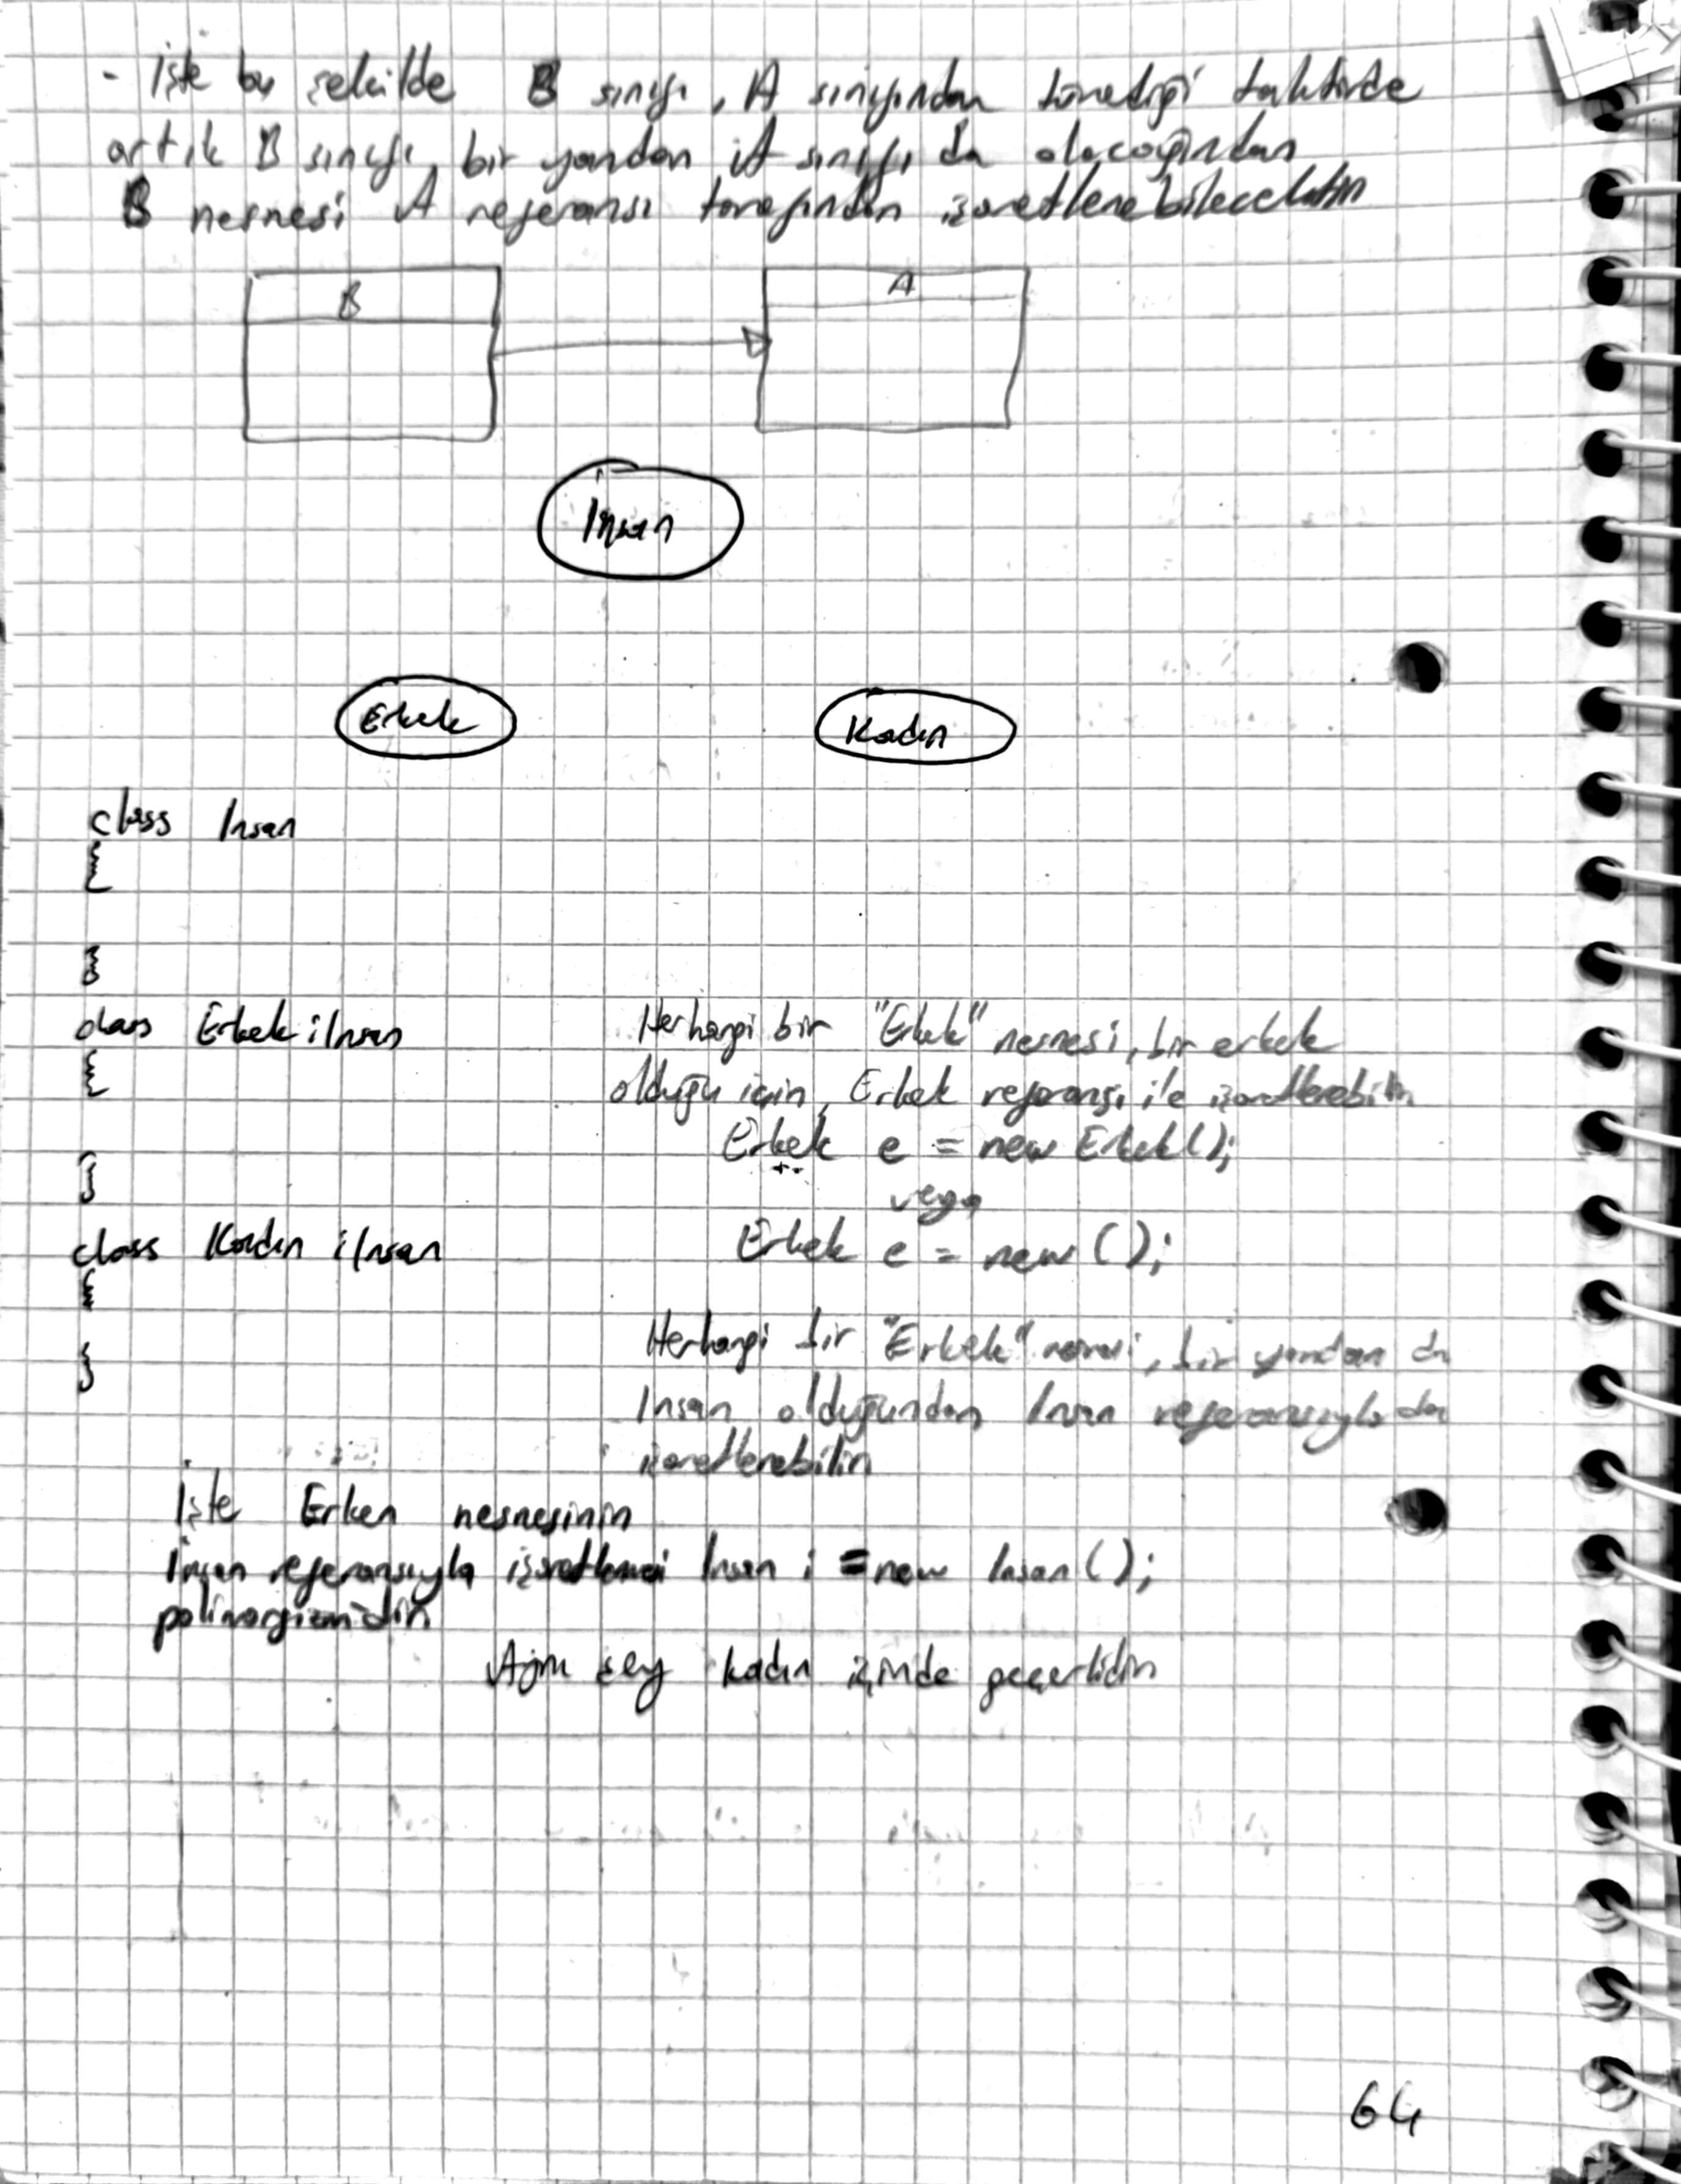 - İşte bu şekilde B sınıfı, A sınıfından türediği taktirde
artık B sınıfı, bir yandan A sınıfı da olacağından
B nesnesi A referansı tarafından işaretlenebilecektir
B
A
İnsan
Erkek
Kadın
class Insan
{
}
class Erkek : Insan
{
}
class Kadın : Insan
{
}
Herhangi bir "Erkek" nesnesi, bir erkek
olduğu için, Erkek referansı ile işaretlenebilir.
Erkek e = new Erkek();
veya
Erkek e = new ();
Herhangi bir "Erkek" nesnesi, bir yandan da
Insan olduğundan Insan referansıyla da
işaretlenebilir
İşte Erken nesnesinin
İnsan referansıyla işaretlemesi Insan i = new Insan();
polimorfizmdir.
Aynı şey kadın içinde geçerlidir
64